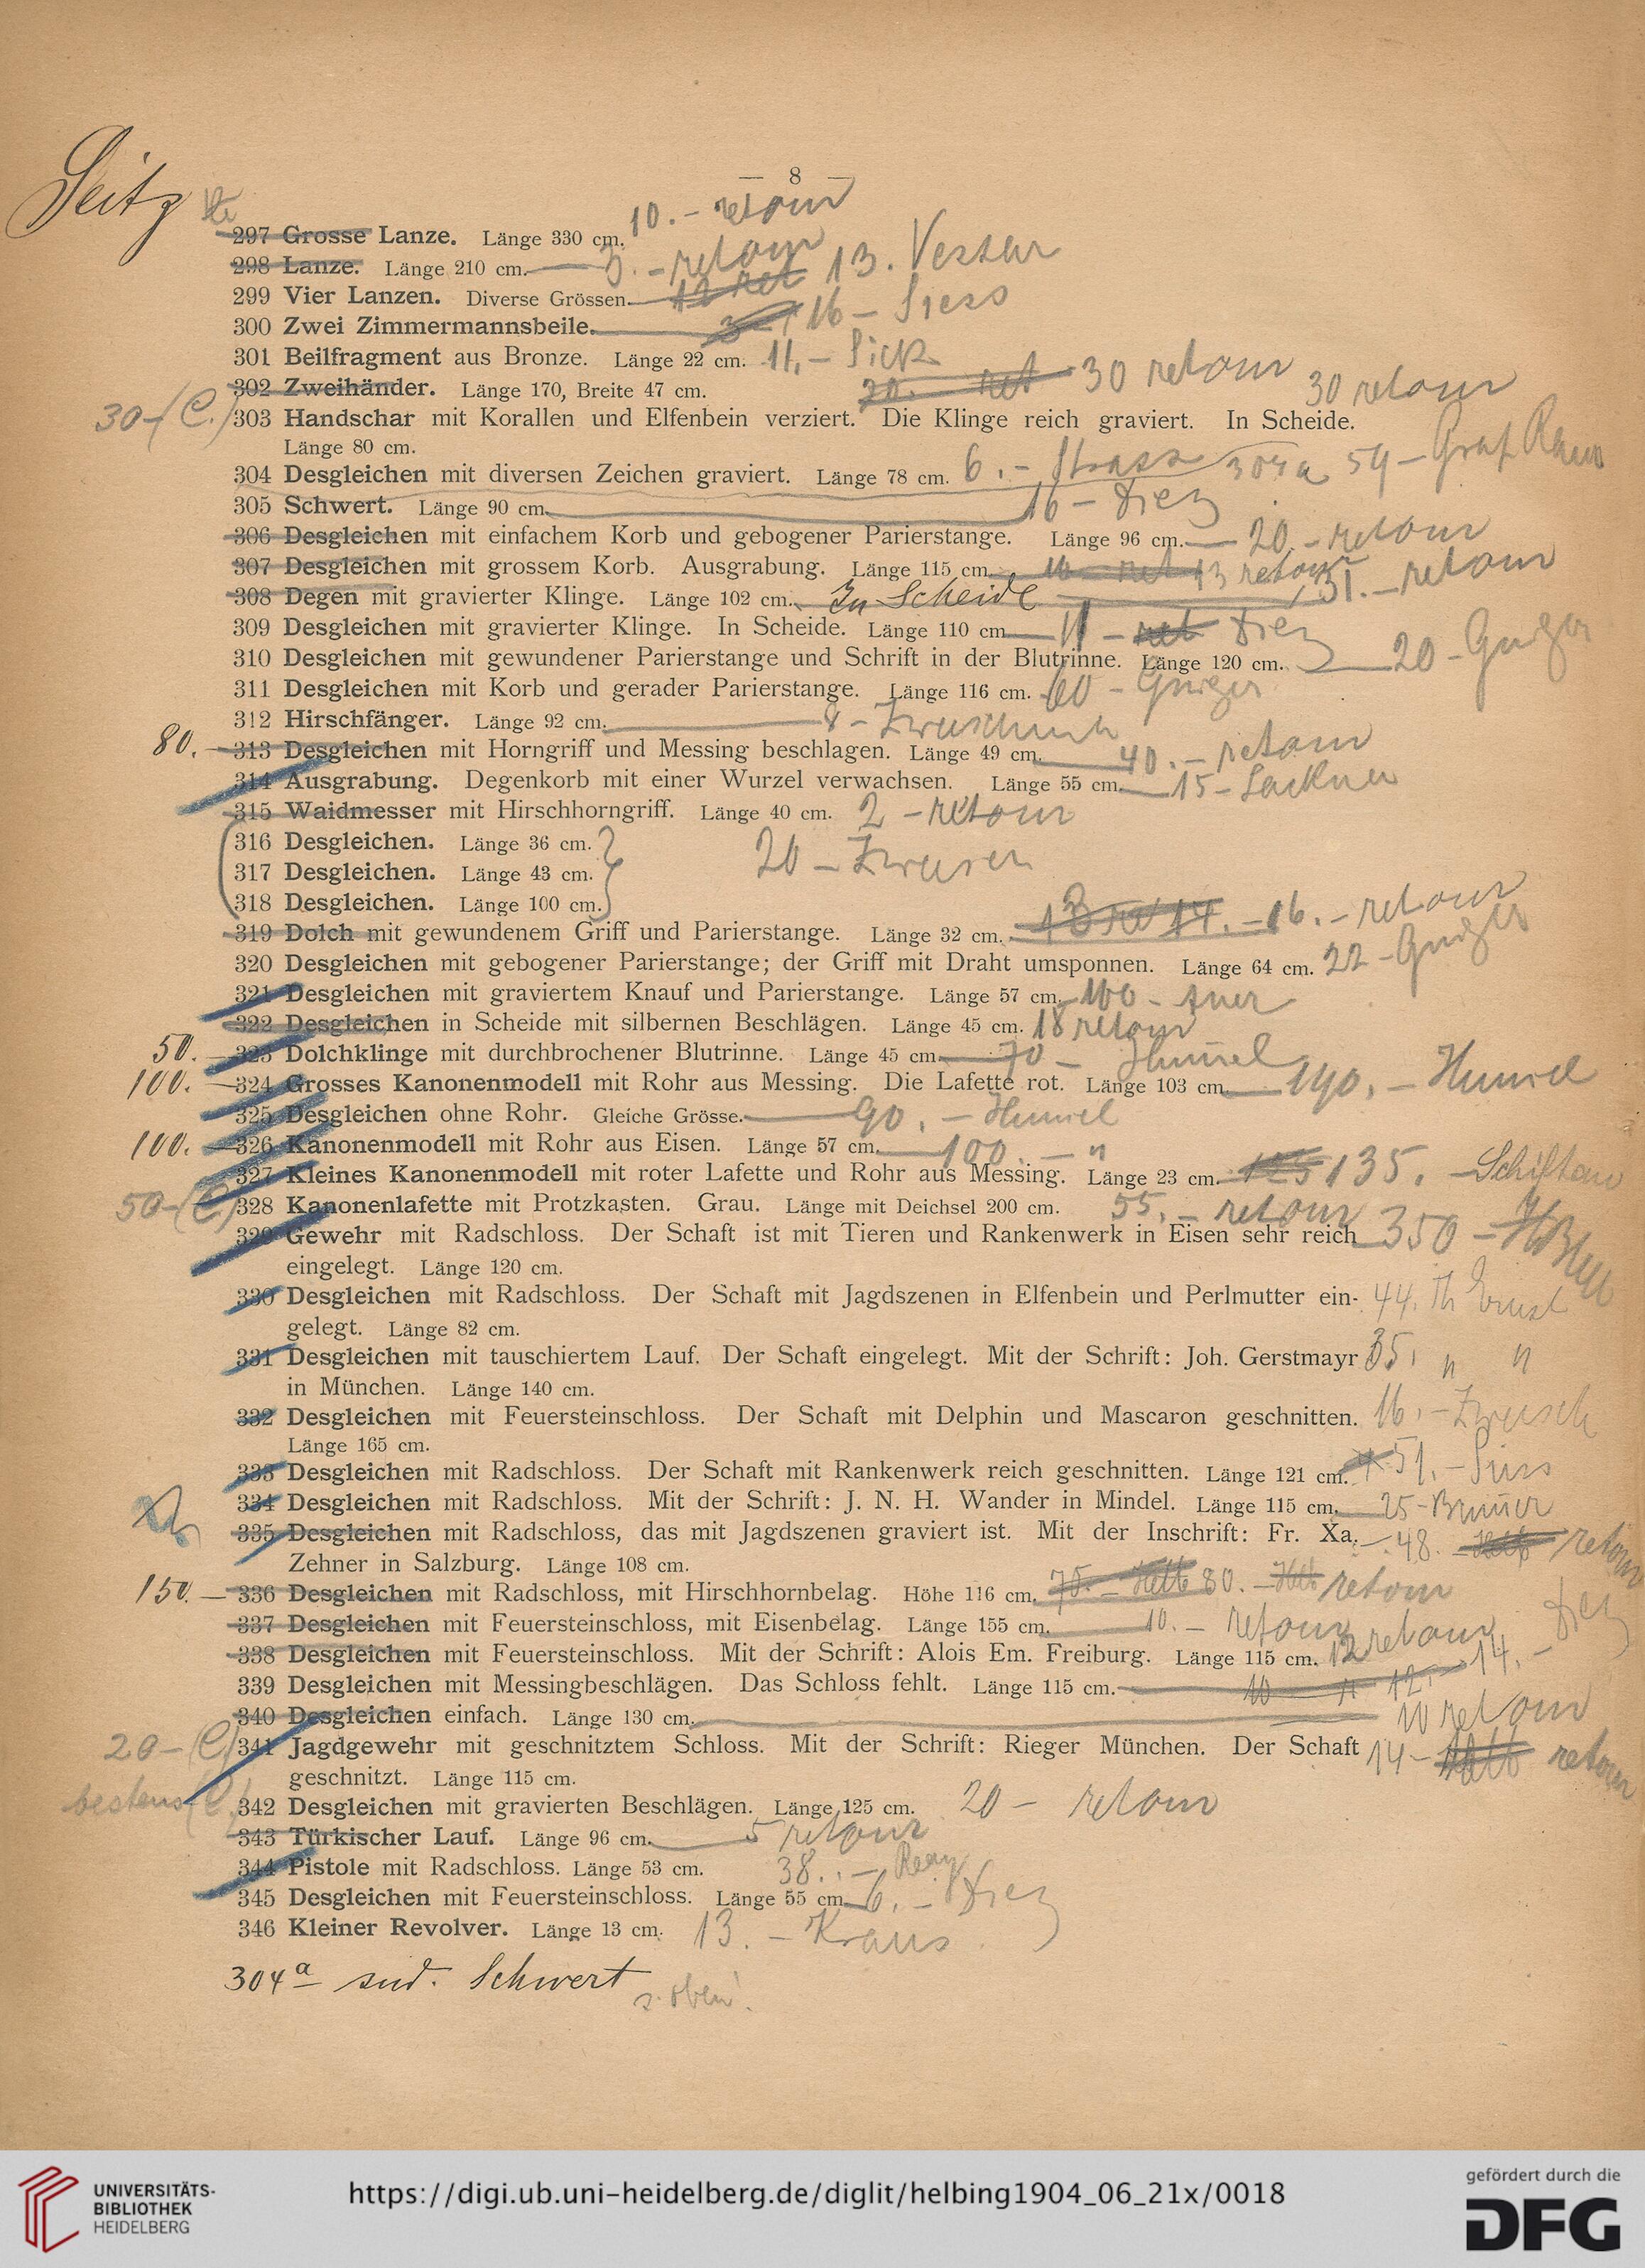 Seitz
— 8 —
297 Grosse Lanze. Länge 330 cm. 10.- retour
298 Lanze. Länge 210 cm. 3.- retour
299 Vier Lanzen. Diverse Grössen. 12 ret 13.
300 Zwei Zimmermannsbeile. 16 -
301 Beilfragment aus Bronze. Länge 22 cm. 11.- Sick
302 Zweihänder. Länge 170, Breite 47 cm. 20. ret 30 retour
30-(C.) 303 Handschar mit Korallen und Elfenbein verziert. Die Klinge reich graviert. In Scheide. 30 retour
Länge 80 cm.
304 Desgleichen mit diversen Zeichen graviert. Länge 78 cm. 6.- Strass 304a 59 - Graf
305 Schwert. Länge 90 cm. 16 - Diez
306 Desgleichen mit einfachem Korb und gebogener Parierstange. Länge 96 cm. 20.- retour
307 Desgleichen mit grossem Korb. Ausgrabung. Länge 115 cm. 13 retour
308 Degen mit gravierter Klinge. Länge 102 cm. In Scheide 31.- retour
309 Desgleichen mit gravierter Klinge. In Scheide. Länge 110 cm. 11 - ret Diez
310 Desgleichen mit gewundener Parierstange und Schrift in der Blutrinne. Länge 120 cm. 20 -
311 Desgleichen mit Korb und gerader Parierstange. Länge 116 cm. 60 -
312 Hirschfänger. Länge 92 cm. 8 -
80. - 313 Desgleichen mit Horngriff und Messing beschlagen. Länge 49 cm. 40.- retour
314 Ausgrabung. Degenkorb mit einer Wurzel verwachsen. Länge 55 cm. 15 - Lackner
315 Waidmesser mit Hirschhorngriff. Länge 40 cm. 2 - retour
316 Desgleichen. Länge 36 cm.
317 Desgleichen. Länge 43 cm. 20 -
318 Desgleichen. Länge 100 cm.
319 Dolch mit gewundenem Griff und Parierstange. Länge 32 cm. 16.- retour
320 Desgleichen mit gebogener Parierstange; der Griff mit Draht umsponnen. Länge 64 cm. 22 -
321 Desgleichen mit graviertem Knauf und Parierstange. Länge 57 cm. 100 -
322 Desgleichen in Scheide mit silbernen Beschlägen. Länge 45 cm. 18 retour
50. - 323 Dolchklinge mit durchbrochener Blutrinne. Länge 45 cm. 70 -
100. - 324 Grosses Kanonenmodell mit Rohr aus Messing. Die Lafette rot. Länge 103 cm. 190.-
325 Desgleichen ohne Rohr. Gleiche Grösse. 90.-
100. - 326 Kanonenmodell mit Rohr aus Eisen. Länge 57 cm. 100.- "
327 Kleines Kanonenmodell mit roter Lafette und Rohr aus Messing. Länge 23 cm. 125 135. - Schiftan
50-(C.) 328 Kanonenlafette mit Protzkasten. Grau. Länge mit Deichsel 200 cm. 55.- retour
329 Gewehr mit Radschloss. Der Schaft ist mit Tieren und Rankenwerk in Eisen sehr reich 350 -
eingelegt. Länge 120 cm.
330 Desgleichen mit Radschloss. Der Schaft mit Jagdszenen in Elfenbein und Perlmutter ein- 44. Th Ernst
gelegt. Länge 82 cm.
331 Desgleichen mit tauschiertem Lauf. Der Schaft eingelegt. Mit der Schrift: Joh. Gerstmayr 35. " "
in München. Länge 140 cm.
332 Desgleichen mit Feuersteinschloss. Der Schaft mit Delphin und Mascaron geschnitten. 16.-
Länge 165 cm.
333 Desgleichen mit Radschloss. Der Schaft mit Rankenwerk reich geschnitten. Länge 121 cm. 51.-
334 Desgleichen mit Radschloss. Mit der Schrift: J. N. H. Wander in Mindel. Länge 115 cm. 25 -
335 Desgleichen mit Radschloss, das mit Jagdszenen graviert ist. Mit der Inschrift: Fr. Xa. 48. - retour
Zehner in Salzburg. Länge 108 cm.
150. - 336 Desgleichen mit Radschloss, mit Hirschhornbelag. Höhe 116 cm. 75. - 80. - retour
337 Desgleichen mit Feuersteinschloss, mit Eisenbelag. Länge 155 cm. 10.- retour
338 Desgleichen mit Feuersteinschloss. Mit der Schrift: Alois Em. Freiburg. Länge 115 cm. 12 retour
339 Desgleichen mit Messingbeschlägen. Das Schloss fehlt. Länge 115 cm. 10 11 12.- 14.- Diez
340 Desgleichen einfach. Länge 130 cm. 10 retour
20-(C) 341 Jagdgewehr mit geschnitztem Schloss. Mit der Schrift: Rieger München. Der Schaft 14 - retour
geschnitzt. Länge 115 cm.
bestens (C.) 342 Desgleichen mit gravierten Beschlägen. Länge 125 cm. 20 - retour
343 Türkischer Lauf. Länge 96 cm. 5 retour
344 Pistole mit Radschloss. Länge 53 cm. 38.-
345 Desgleichen mit Feuersteinschloss. Länge 55 cm. 6.- Diez
346 Kleiner Revolver. Länge 13 cm. 13.- Kraus
304a Schwert s. oben!
UNIVERSITÄTS-
BIBLIOTHEK
HEIDELBERG
https://digi.ub.uni-heidelberg.de/diglit/helbing1904_06_21x/0018
gefördert durch die
DFG